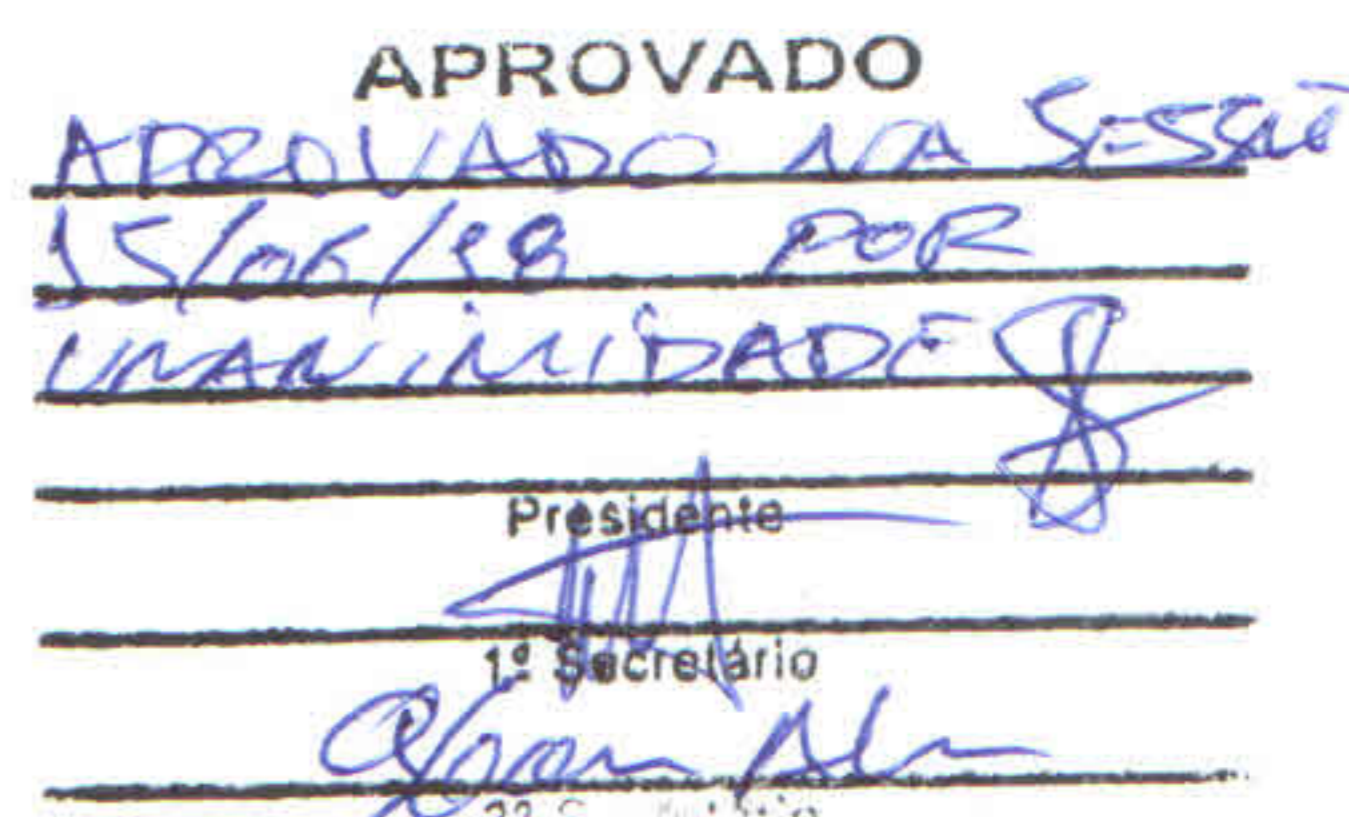 APROVADO
APROVADO NA SESSÃO
15/06/98 POR
UNANIMIDADE
Presidente
1º Secretário
2º Secretário